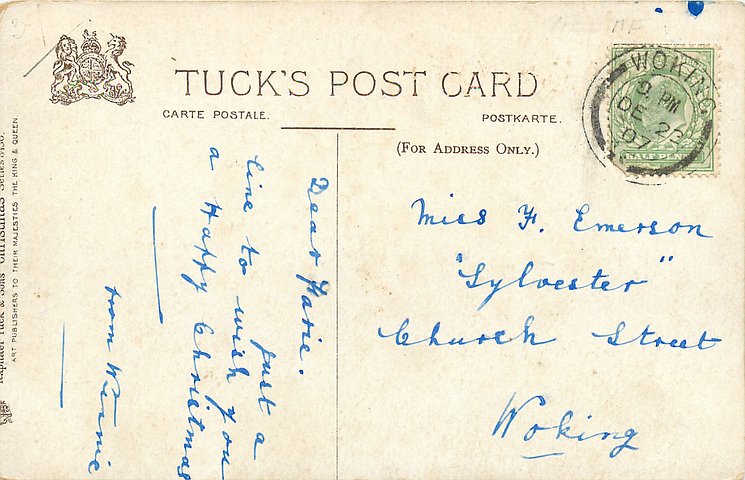 TUCK'S POST CARD
CARTE POSTALE.
POSTKARTE.
(FOR ADDRESS ONLY.)
WOKING
9 PM
DE 23
07
HALF PENNY
Dear
Just a
line to wish you
a Happy Christmas
from Winnie
Miss F. Emerson
"Sylvester"
Church Street
Woking
Raphael Tuck & Sons' Christmas Series
ART PUBLISHERS TO THEIR MAJESTIES THE KING & QUEEN